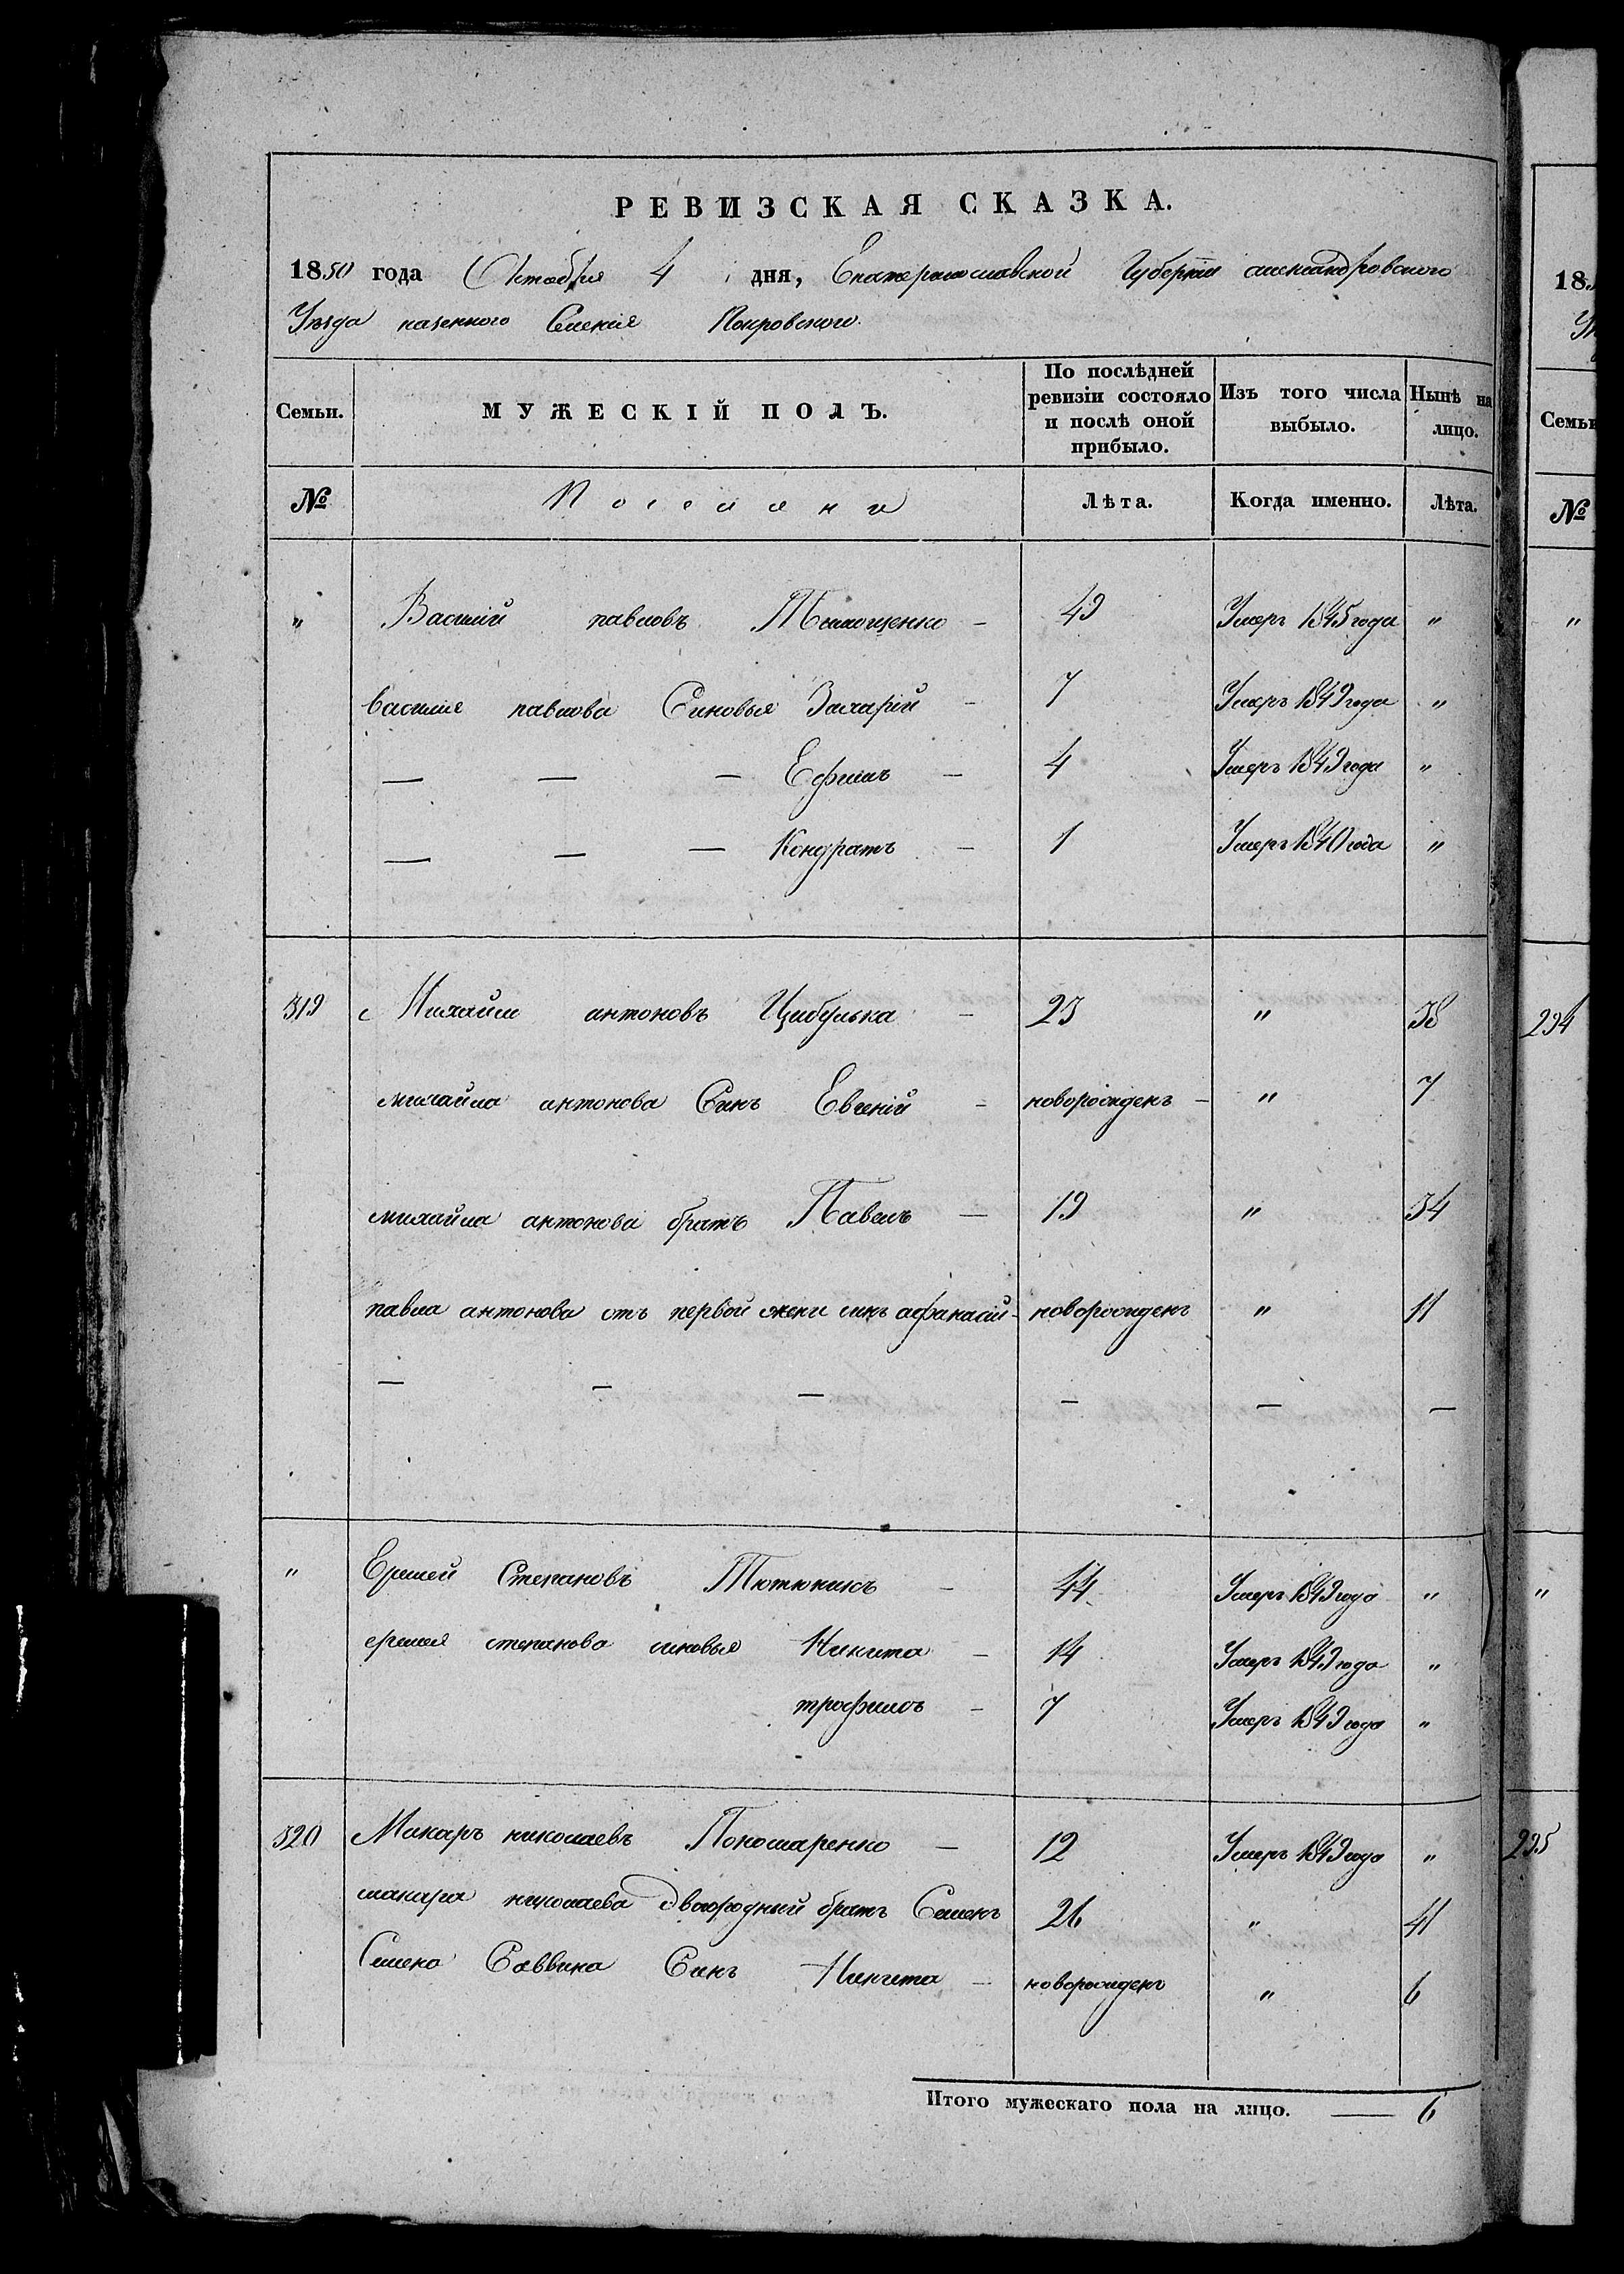 РЕВИЗСКАЯ СКАЗКА.
1850 года Октября 4 дня, Екатеринославской Губернии александровского
Уезда казенного Селения Покровского.
Семьи. МУЖЕСКІЙ ПОЛЪ. По послѣдней ревизіи состояло и послѣ оной прибыло. Изъ того числа выбыло. Нынѣ на лицо.
№ Поселяни Лѣта. Когда именно. Лѣта.
" Василий павловъ 49 Умеръ 1845 года "
василия павлова Синовья Захарий - 7 Умеръ 1849 года "
— — — Ефимъ - 4 Умеръ 1849 года "
— — — Кондратъ - 1 Умеръ 1840 года "
319 Михайла антоновъ Цибулька - 23 " 38
михайла антонова Синъ Евгений - новорожденъ - " 7
михайла антонова братъ Павелъ - 19 " 34
павла антонова отъ первой жени синъ афанасий - новорожденъ " 11
— — — — — —
" Ермей Степановъ Тютюникъ - 44 Умеръ 1849 года "
ермея степанова синовья Никита - 14 Умеръ 1849 года "
трофимъ - 7 Умеръ 1849 года "
320 Макаръ николаевъ Пономаренко - 12 Умеръ 1849 года "
макара николаева двоюродный братъ Семенъ 26 " 41
Семена Саввина Синъ Никита - новорожденъ " 6
Итого мужескаго пола на лицо. — 6
18
Семьи
№
"
294
"
295